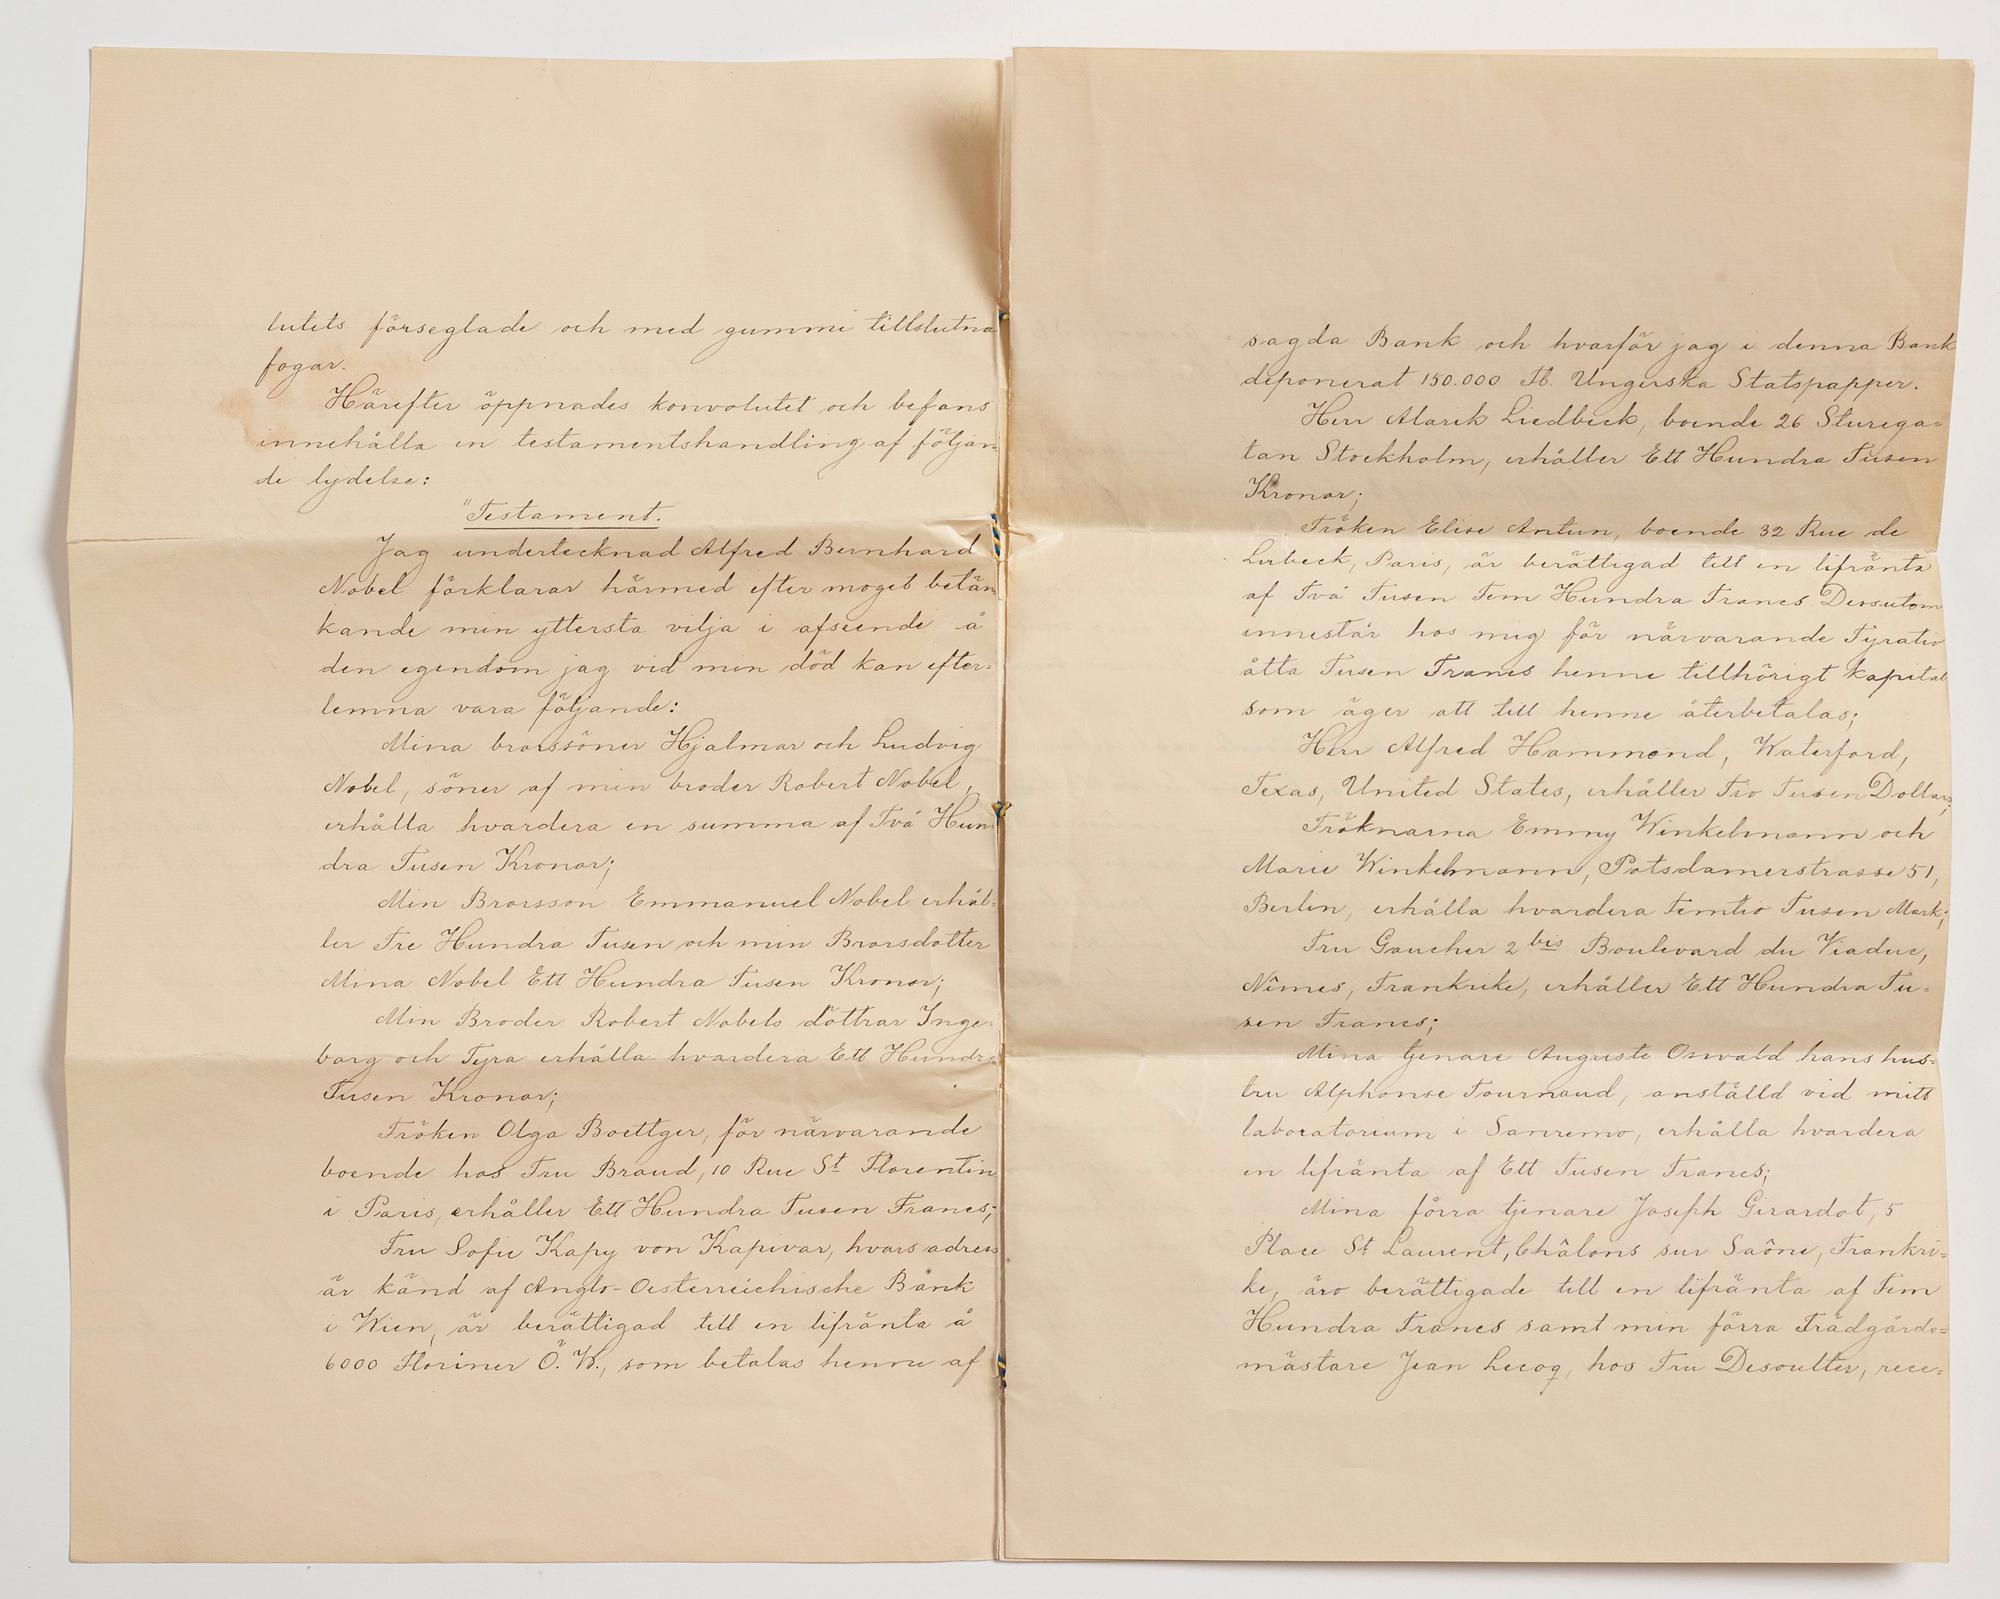 lutets förseglade och med gummi tillslutna
fogar.
Härefter öppnades konvolutet och befans
innehålla en testamentshandling af följan-
de lydelse:
"Testament.
Jag undertecknad Alfred Bernhard
Nobel förklarar härmed efter moget betän-
kande min yttersta vilja i afseende å
den egendom jag vid min död kan efter-
lemna vara följande:
Mina brorssöner Hjalmar och Ludvig
Nobel, söner af min broder Robert Nobel,
erhålla hvardera en summa af Två Hun-
dra Tusen Kronor;
Min Brorsson Emmanuel Nobel erhål-
ler Tre Hundra Tusen och min Brorsdotter
Mina Nobel Ett Hundra Tusen Kronor;
Min Broder Robert Nobels döttrar Inge-
borg och Tyra erhålla hvardera Ett Hundra
Tusen Kronor;
Fröken Olga Boettger, för närvarande
boende hos Fru Brand, 10 Rue St Florentin
i Paris, erhåller Ett Hundra Tusen Francs;
Fru Sofie Kapy von Kapivar, hvars adress
är känd af Anglo-Oesterreichische Bank
i Wien, är berättigad till en lifränta å
6000 Floriner Ö. W., som betalas henne af
sagda Bank och hvarför jag i denna Bank
deponerat 150.000 Fl. Ungerska Statspapper.
Herr Alarik Liedbeck, boende 26 Sturega-
tan Stockholm, erhåller Ett Hundra Tusen
Kronor;
Fröken Elise Antun, boende 32 Rue de
Lubeck, Paris, är berättigad till en lifränta
af Två Tusen Fem Hundra Francs. Dessutom
innestår hos mig för närvarande Fyratio
åtta Tusen Francs henne tillhörigt kapital
som äger att till henne återbetalas;
Herr Alfred Hammond, Waterford,
Texas, United States, erhåller Tio Tusen Dollars;
Fröknarna Emmy Winkelmann och
Marie Winkelmann, Potsdamerstrasse 51,
Berlin, erhålla hvardera Femtio Tusen Mark;
Fru Gaucher 2 bis Boulevard du Viaduc,
Nîmes, Frankrike, erhåller Ett Hundra Tu-
sen Francs;
Mina tjenare Auguste Oswald hans hus-
tru Alphonse Tournaud, anställd vid mitt
laboratorium i Sanremo, erhålla hvardera
en lifränta af Ett Tusen Francs;
Mina förra tjenare Joseph Girardot, 5
Place St Laurent, Châlons sur Saône, Frankri-
ke, äro berättigade till en lifränta af Fem
Hundra Francs samt min förra Trädgårds-
mästare Jean Lecoq, hos Fru Desoutter, rece-